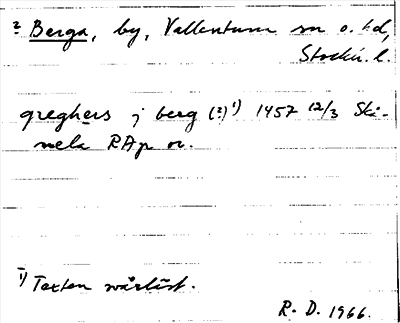 2 Berga, by, Vallentuna sn o. hd,
Stockh. l.
greghers j berg (?) 1) 1457 12/3 Skå-
nela RAp or.
1) Texten svårläst.
R. D. 1966.